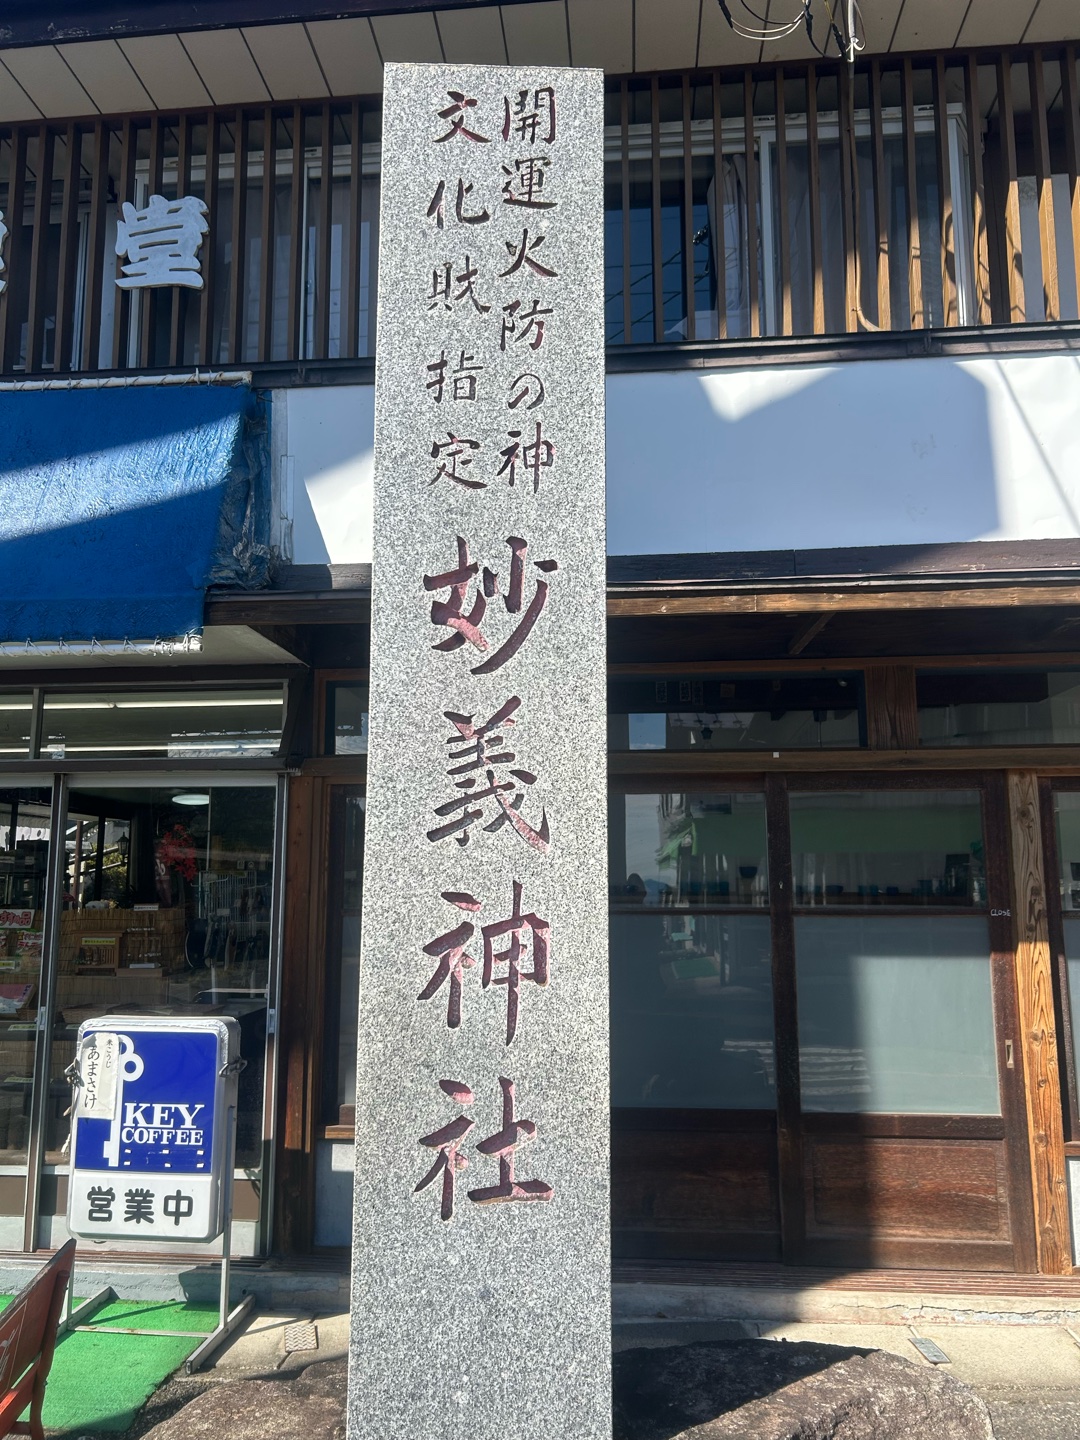 開運火防の神
文化財指定
妙義神社
堂
米こうじ
あまさけ
KEY
COFFEE
営業中
CLOSE